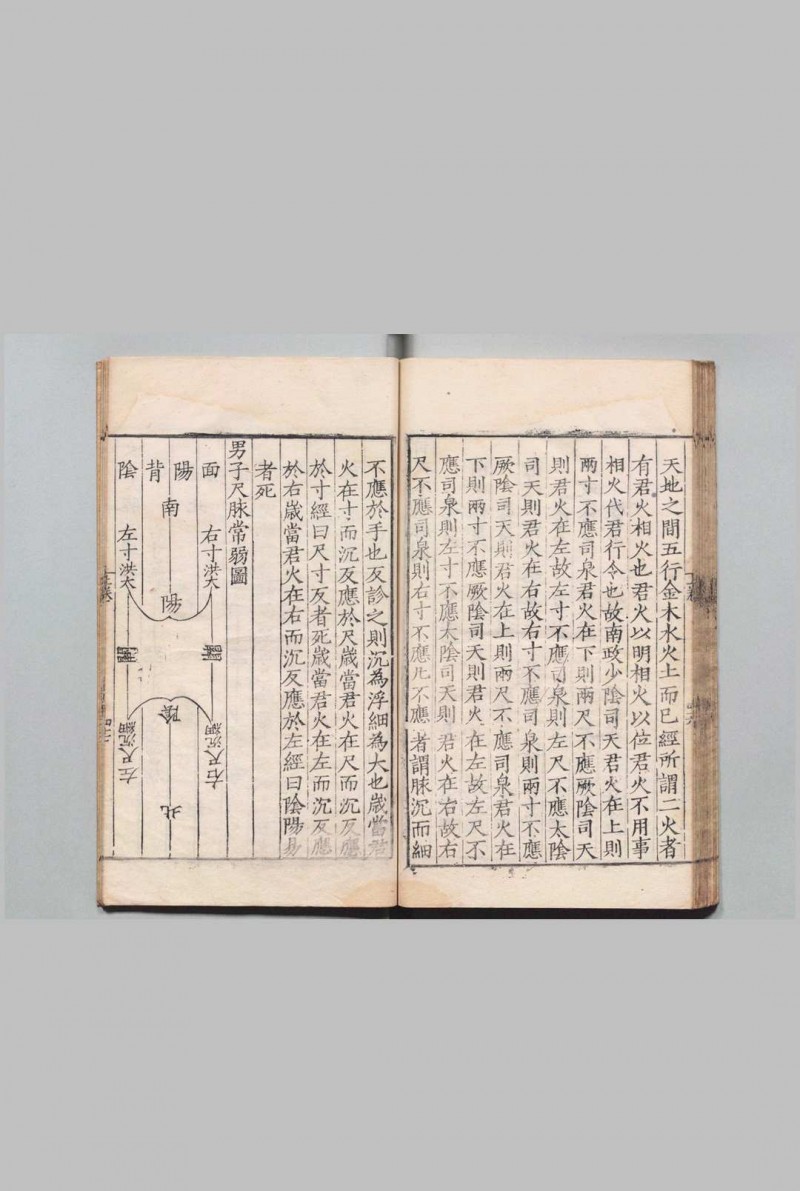 天地之間五行金木水火土而已經所謂二火者
有君火相火也君火以明相火以位君火不用事
相火代君行令也故南政少陰司天君火在上則
兩寸不應司泉君火在下則兩尺不應厥陰司天
則君火在左故左寸不應司泉則左尺不應太陰
司天則君火在右故右寸不應司泉則兩寸不應
厥陰司天則君火在上則兩尺不應司泉君火在
下則兩寸不應厥陰司天則君火在左故左尺不
應司泉則左寸不應太陰司天則君火在右故右
尺不應司泉則右寸不應凡不應者謂脉沉而細
不應於手也反診之則沉為浮細為大也歲當君
火在寸而沉反應於尺歲當君火在尺而沉反應
於寸經曰尺寸反者死歲當君火在左而沉反應
於右歲當君火在右而沉反應於左經曰陰陽易
者死
男子尺脉常弱圖
面 右寸洪大
陽
南
陽
背
陰 左寸洪大
陰
北
右尺沉細
左尺沉細